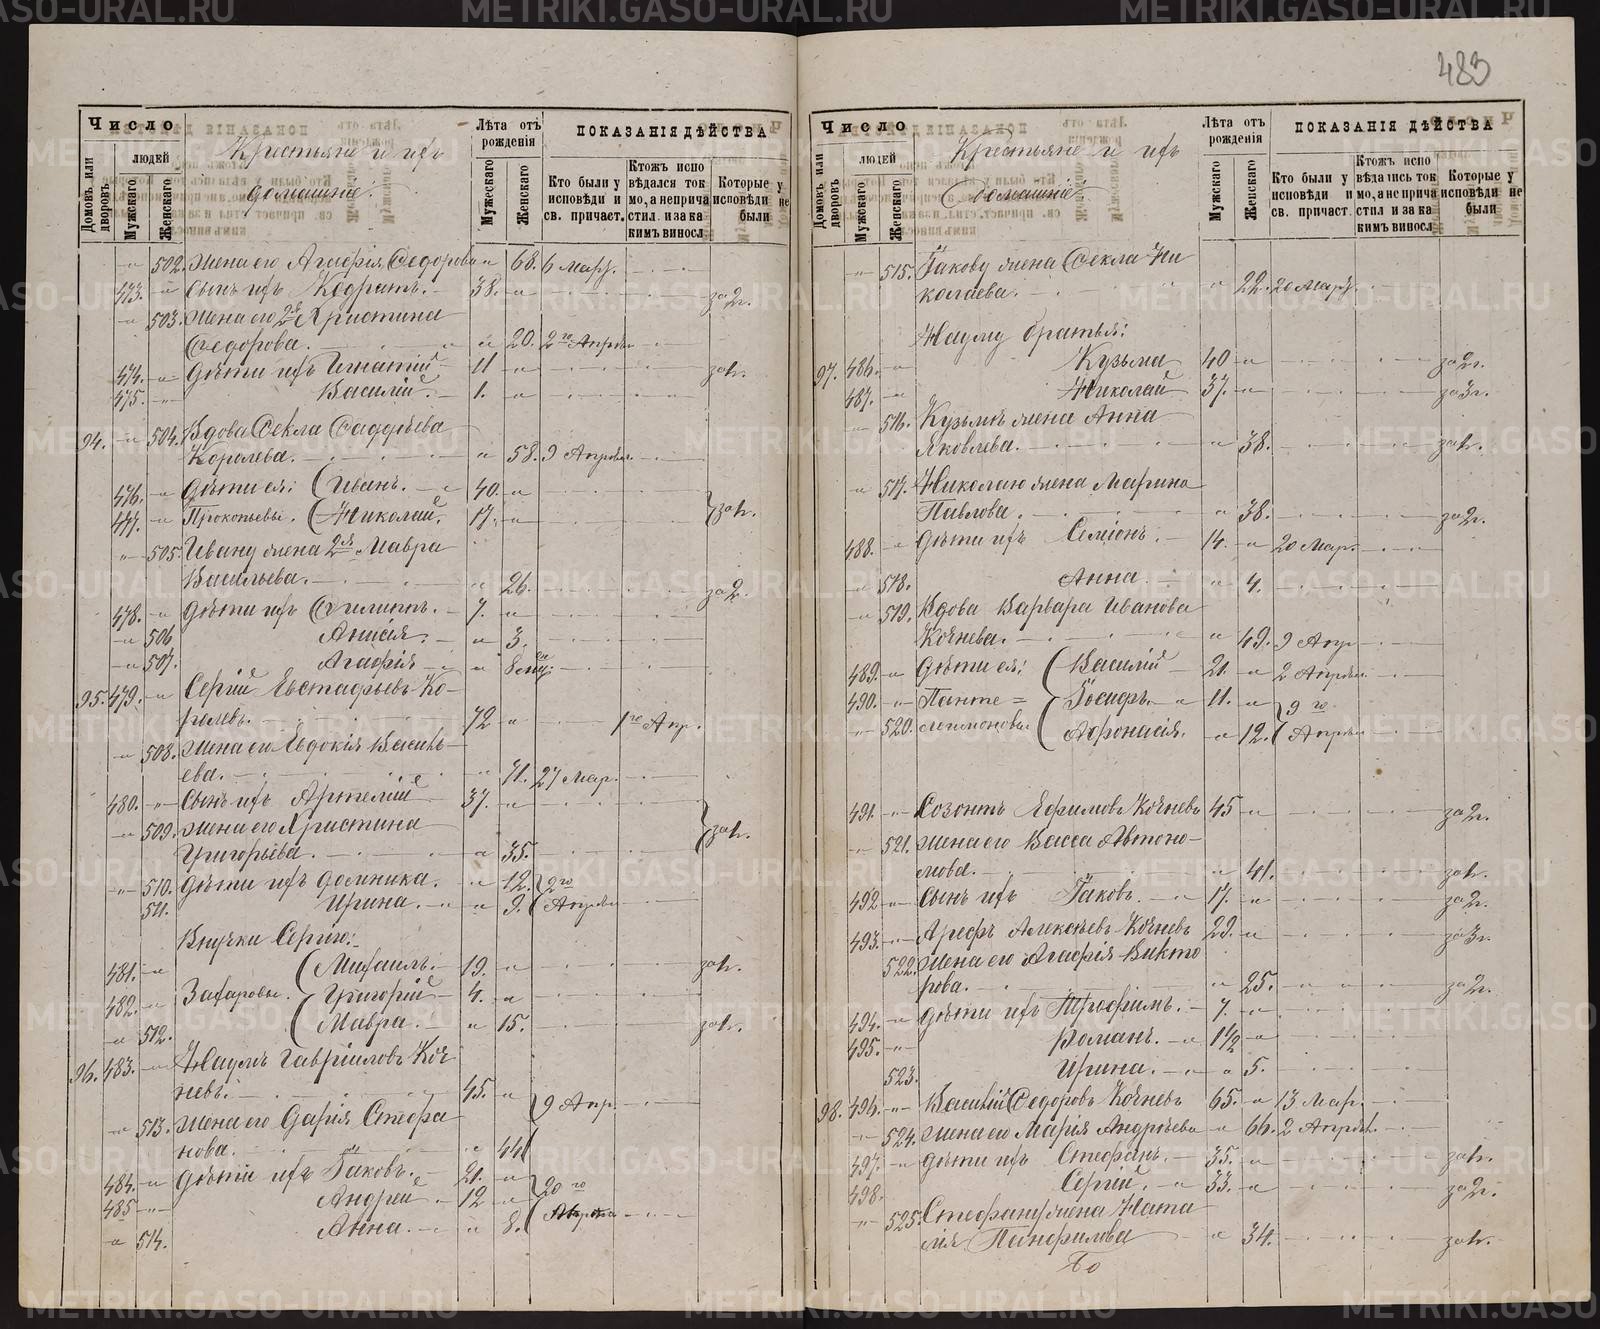 483
Число
людей
Домовъ или дворовъ
Мужскаго
Женскаго
Крестьяне и ихъ
домашніе.
Лѣта отъ рожденія
Мужскаго
Женскаго
ПОКАЗАНІЯ ДѢЙСТВА
Кто были у исповѣди и св. причаст.
Ктожъ исповѣдался токмо, а не причастил. и за какимъ виносл
Которые у исповѣди не были
502. жена его Агафія Ѳедорова 68. 6 Мар.
473. Сынъ ихъ Кодратъ. 38. за 2г.
503. жена его 2я Христина
Ѳедорова. 20. 2го Апрѣля
474. дѣти ихъ Игнатій 11 за 1г.
475. Василій. 1.
94. 504. Вдова Ѳекла Фаддѣева
Королева. 58. 9 Апрѣля.
476. дѣти ея: Иванъ. 40.
477. Прокопьевы. Николай. 17. за 1г.
505. Ивану жена 2я Мавра
Васильева. 26. за 2.
478. дѣти ихъ Филиппъ. 7.
506 Анисія. 3.
507. Агафія
95. 479. Сергій Евстафьевъ Ко-
ролевъ. 72 1го Апр.
508. жена его Евдокія Василь-
ева. 71. 27 Мар.
480. Сынъ ихъ Артемій 37.
509. жена его Христина за 1г.
Григорьева. 35.
510. дѣти ихъ Домника. 12. 2го
511. Ирина. 9. Апрѣля
Внучки Сергію:
481. Михаилъ. 19. за 1г.
482. Захаровы. Григорій 4.
512. Мавра. 15. за 1г.
96. 483. Наумъ Гавріиловъ Коч-
невъ. 45. 9 Апр.
513. жена его Дарія Стефа-
нова. 44
484. дѣти ихъ Іаковъ. 21. 20го
485 Андрей 12
514. Анна. 8.
Число
людей
Домовъ или дворовъ
Мужскаго
Женскаго
Крестьяне и ихъ
домашніе
Лѣта отъ рожденія
Мужскаго
Женскаго
ПОКАЗАНІЯ ДѢЙСТВА
Кто были у исповѣди и св. причаст.
Ктожъ исповѣдался токмо, а не причастил. и за какимъ виносл
Которые у исповѣди не были
515. Іакову жена Ѳекла Ни
колаева. 22. 20 Мар.
Науму братья:
97. 486. Кузьма 40 за 2г.
487. Николай 37. за 3г.
516. Кузьмѣ жена Анна
Яковлева. 38. за 1г.
517. Николаю жена Марина
Павлова. 38. за 2г.
488. дѣти ихъ Семіонъ. 14. 20 Мар.
518. Анна. 4.
519. Вдова Варвара Иванова
Кочнева. 49. 9 Апр
489. дѣти ея: Василій 21. 2 Апрѣля.
490. Панте= Іосифъ. 11. 9го
520. леимоновы. Афонасія. 12. Апрѣля
491. Созонтъ Ефимовъ Кочневъ 45 за 2г.
521. жена его Васса Автоно-
мова. 41. за 1г.
492 Сынъ ихъ Іаковъ. 17. за 2г.
493. Арефъ Алексѣевъ Кочневъ 29. за 3г.
522. жена его Агафія Викто
рова. 25. за 2г.
494. дѣти ихъ Трофимъ. 7.
495. Романъ. 1 1/2
523. Ирина. 5.
98. 496. Василій Ѳедоровъ Кочневъ 65. 13 Мар.
524. жена его Марія Андрѣева 66. 2 Апрѣля.
497. дѣти ихъ Стефанъ. 35. за 1г.
498. Сергій. 33. за 2г.
525. Стефану жена Ната
лія Панфилова 34. за 1г.
METRIKI.GASO-URAL.RU